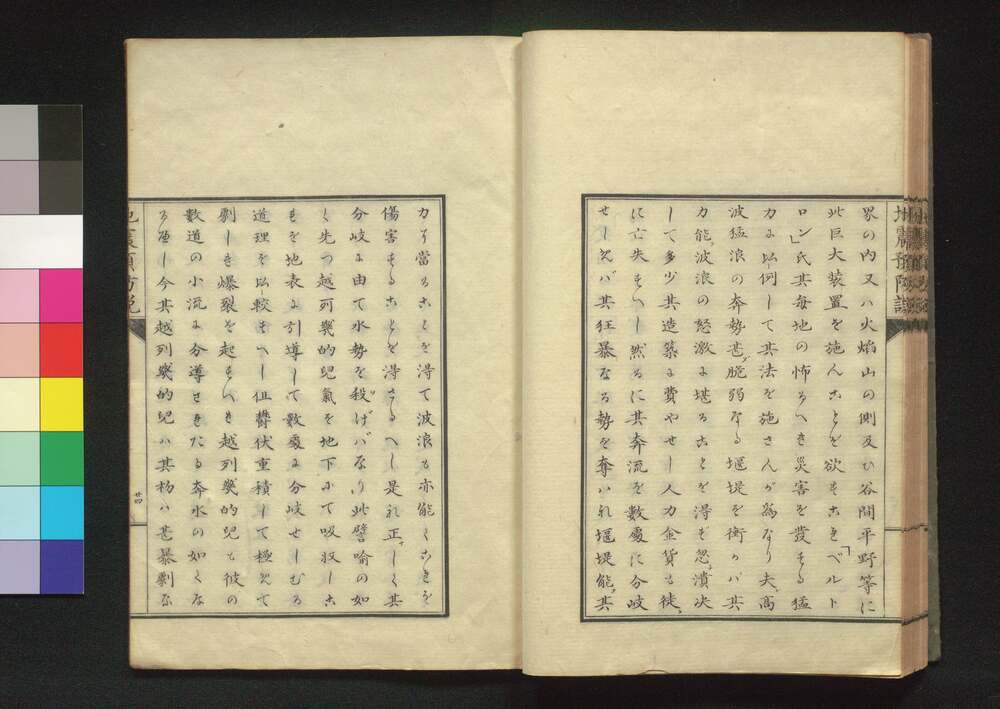 界の内又ハ火焔山の側及ひ谷間平野等に
此巨大装置を施んことを欲することきベルト
ロン氏其毎地の怖るへき災害を發する猛
力に以例して其法を施さんが為なり夫高
波猛浪の奔勢甚脱弱なる堰堤を衝かバ其
力能波浪の怒激に堪ることを得ず忽潰决
して多少其造築に費やせし人力金貨も徒
に亡失すへし然るに其奔流を數處に分岐
せしめバ其狂暴なる勢を奪ハれ堰堤能其
力に當ることを得て波浪も亦能くこきを
傷害することを得さるへし是れ正しく其
分岐に由て水勢を殺げバなり此譬喩の如
く先つ越列幾的兒氣を地下にて吸収しこ
れを地表に引導して數處に分岐せしむる
道理を以較すへし但欝伏重積して極めて
劇しき爆裂を起すへき越列幾的兒も彼の
數道の小流に分導せきたる奔水の如くな
るへし今其越列幾的兒ハ其物ハ甚暴劇な
地震預防説
廿四